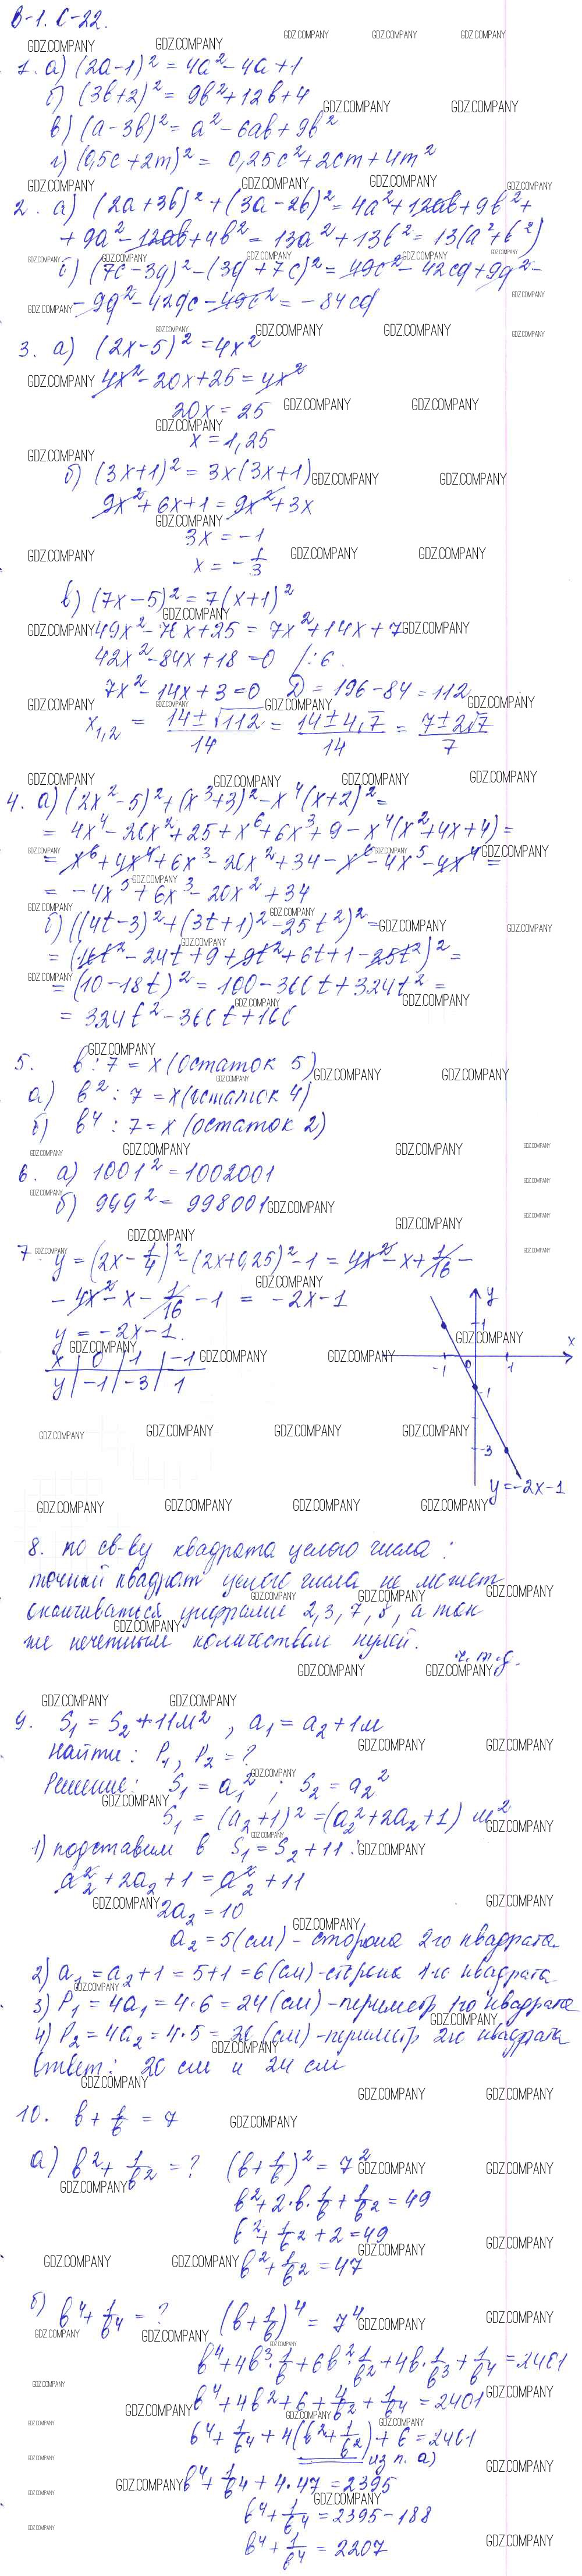 В-1. С-22.
1. а) (2a-1)² = 4a² - 4a + 1
б) (3b+2)² = 9b² + 12b + 4
в) (a-3b)² = a² - 6ab + 9b²
г) (0,5c + 2m)² = 0,25c² + 2cm + 4m²
2. а) (2a+3b)² + (3a-2b)² = 4a² + 12ab + 9b² +
+ 9a² - 12ab + 4b² = 13a² + 13b² = 13(a²+b²)
б) (7c-3d)² - (3d+7c)² = 49c² - 42cd + 9d² -
- 9d² - 42dc - 49c² = -84cd
3. а) (2x-5)² = 4x²
4x² - 20x + 25 = 4x²
20x = 25
x = 1,25
б) (3x+1)² = 3x(3x+1)
9x² + 6x + 1 = 9x² + 3x
3x = -1
x = -1/3
в) (7x-5)² = 7(x+1)²
49x² - 70x + 25 = 7x² + 14x + 7
42x² - 84x + 18 = 0 /:6
7x² - 14x + 3 = 0 D = 196 - 84 = 112
x₁,₂ = (14 ± √112)/14 = (14 ± 4√7)/14 = (7 ± 2√7)/7
4. а) (2x²-5)² + (x³+3)² - x⁴(x+2)² =
= 4x⁴ - 20x² + 25 + x⁶ + 6x³ + 9 - x⁴(x²+4x+4) =
= x⁶ + 4x⁴ + 6x³ - 20x² + 34 - x⁶ - 4x⁵ - 4x⁴ =
= -4x⁵ + 6x³ - 20x² + 34
б) ((4t-3)² + (3t+1)² - 25t²)² =
= (16t² - 24t + 9 + 9t² + 6t + 1 - 25t²)² =
= (10 - 18t)² = 100 - 360t + 324t² =
= 324t² - 360t + 100
5. b : 7 = x (остаток 5)
а) b² : 7 = x (остаток 4)
б) b⁴ : 7 = x (остаток 2)
6. а) 1001² = 1002001
б) 999² = 998001
7. y = (2x - 1/4)² - (2x+0,25)² - 1 = 4x² - x + 1/16 -
- 4x² - x - 1/16 - 1 = -2x - 1
y = -2x - 1.
x | 0 | 1 | -1
y | -1 | -3 | 1
y
1
x
-1 0 1
-1
-3
y = -2x - 1
8. по св-ву квадрата целого числа:
точный квадрат целого числа не может
оканчиваться цифрами 2, 3, 7, 8, а так
же нечетным количеством нулей.
ч.т.д.
9. S₁ = S₂ + 11м², a₁ = a₂ + 1м
Найти: P₁, P₂ = ?
Решение: S₁ = a₁²; S₂ = a₂²
S₁ = (a₂+1)² = (a₂² + 2a₂ + 1) м²
1) подставим в S₁ = S₂ + 11:
a₂² + 2a₂ + 1 = a₂² + 11
2a₂ = 10
a₂ = 5 (см) - сторона 2го квадрата
2) a₁ = a₂ + 1 = 5 + 1 = 6 (см) - сторона 1го квадрата
3) P₁ = 4a₁ = 4·6 = 24 (см) - периметр 1го квадрата
4) P₂ = 4a₂ = 4·5 = 20 (см) - периметр 2го квадрата
Ответ: 20 см и 24 см
10. b + 1/b = 7
а) b² + 1/b² = ? (b + 1/b)² = 7²
b² + 2·b·1/b + 1/b² = 49
b² + 1/b² + 2 = 49
b² + 1/b² = 47
б) b⁴ + 1/b⁴ = ? (b + 1/b)⁴ = 7⁴
b⁴ + 4b³·1/b + 6b²·1/b² + 4b·1/b³ + 1/b⁴ = 2401
b⁴ + 4b² + 6 + 4/b² + 1/b⁴ = 2401
b⁴ + 1/b⁴ + 4(b² + 1/b²) + 6 = 2401
из п. а)
b⁴ + 1/b⁴ + 4·47 = 2395
b⁴ + 1/b⁴ = 2395 - 188
b⁴ + 1/b⁴ = 2207
GDZ.COMPANY